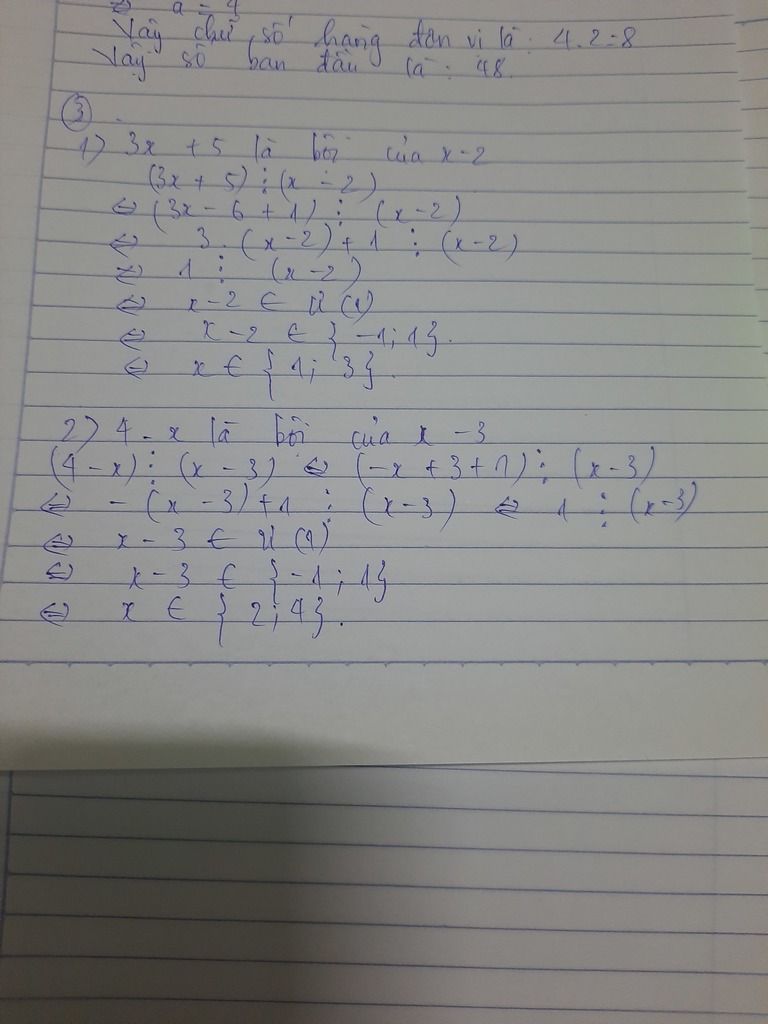 ⇔ a = 4
Vậy chữ số hàng đơn vị là: 4.2=8
Vậy số ban đầu là: 48.
③
1) 3x + 5 là bội của x-2
(3x + 5) ⋮ (x - 2)
⇔ (3x - 6 + 1) ⋮ (x-2)
⇔ 3.(x-2)+1 ⋮ (x-2)
⇔ 1 ⋮ (x-2)
⇔ x-2 ∈ Ư(1)
⇔ x-2 ∈ {-1; 1}.
⇔ x ∈ {1; 3}.
2) 4 - x là bội của x - 3
(4-x) ⋮ (x - 3) ⇔ (-x + 3 + 1) ⋮ (x-3)
⇔ - (x - 3)+1 ⋮ (x-3) ⇔ 1 ⋮ (x-3)
⇔ x - 3 ∈ Ư(1)
⇔ x-3 ∈ {-1; 1}
⇔ x ∈ {2; 4}.